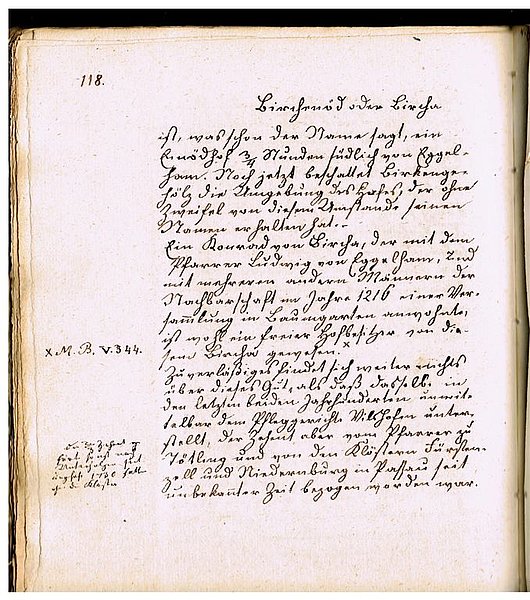 118.
Birchenöd oder Bircha
ist, was schon der Name sagt, ein
Einödhof 3/4 Stunden südlich von Eggel-
ham. Noch jetzt beschattet Birkenge-
hölz die Umgebung des Hofes, der ohne
Zweifel von diesem Umstande seinen
Namen erhalten hat.
Ein Konrad von Bircha, der mit dem
Pfarrer Ludwig von Eggelham, und
mit mehreren andern Männern der
Nachbarschaft im Jahre 1216 einer Ver-
sammlung in Baumgarten anwohnte,
ist wohl ein freier Hofbesitzer von die-
sem Bircha gewesen. x
x M. B. V. 344.
Zuverläßiges findet sich weiter nichts
über dieses Gut, als daß dasselbe in
den letzten beiden Jahrhunderten unmit-
telbar dem Pfleggerichte Vilshofen unter-
stellt, der Zehent aber vom Pfarrer zu
und von den Klöstern Fürsten-
zell und Niedernburg in Passau seit
unbekannter Zeit bezogen worden war.